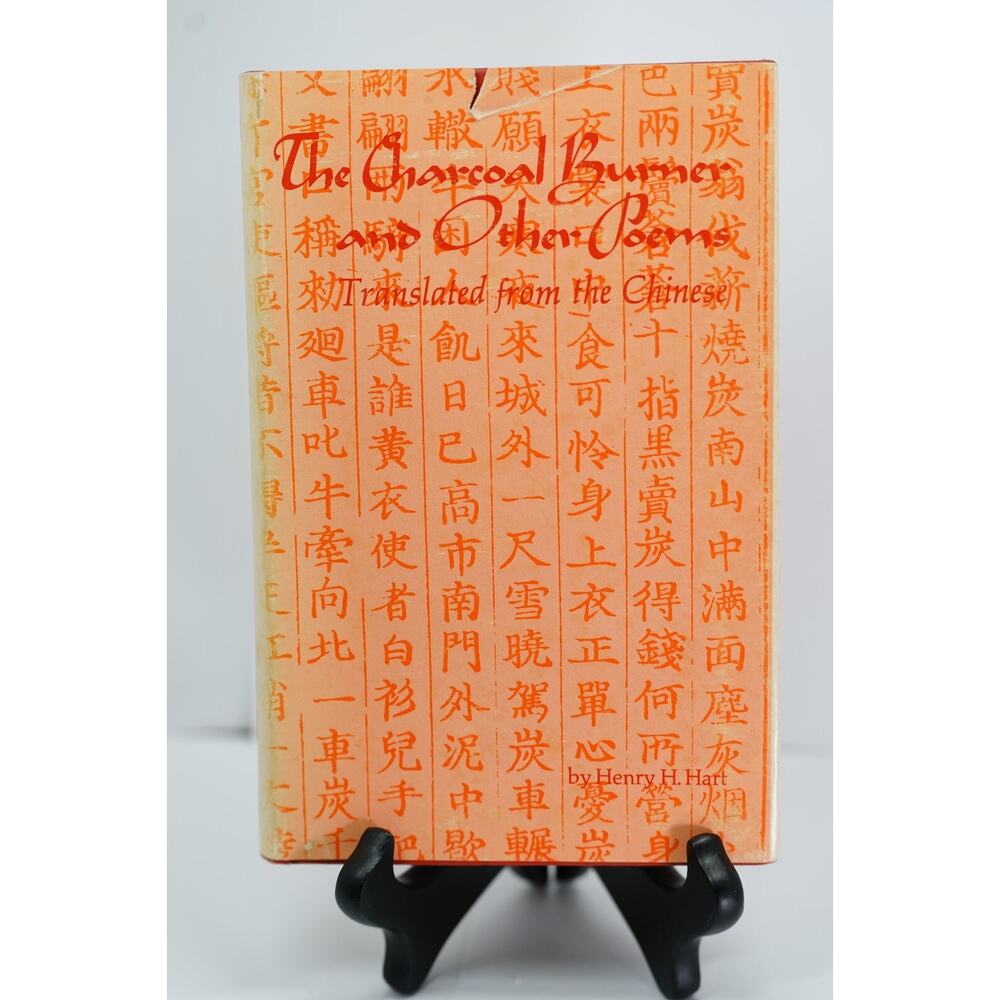 The Charcoal Burner
and Other Poems
Translated from the Chinese
by Henry H. Hart
賣炭翁伐薪燒炭南山中滿面塵灰烟
兩鬢蒼蒼十指黑賣炭得錢何所營身
上衣裳口中食可怜身上衣正單心憂炭
賤願天寒夜來城外一尺雪曉駕炭車輾
氷轍牛困人飢日已高市南門外泥中歇
翩翩兩騎來是誰黃衣使者白衫兒手把
文書口稱勑廻車叱牛牽向北一車炭千
官使驅將惜不得